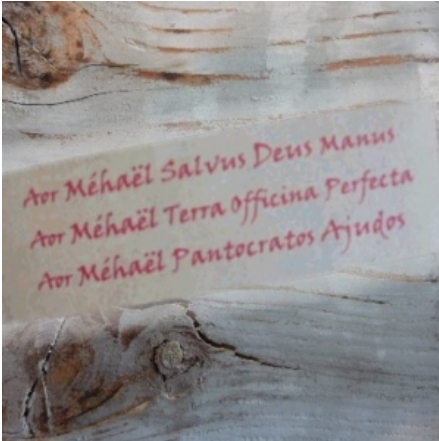 Aor Méhaël Salvus Deus Manus
Aor Méhaël Terra Officina Perfecta
Aor Méhaël Pantocratos Ajudos